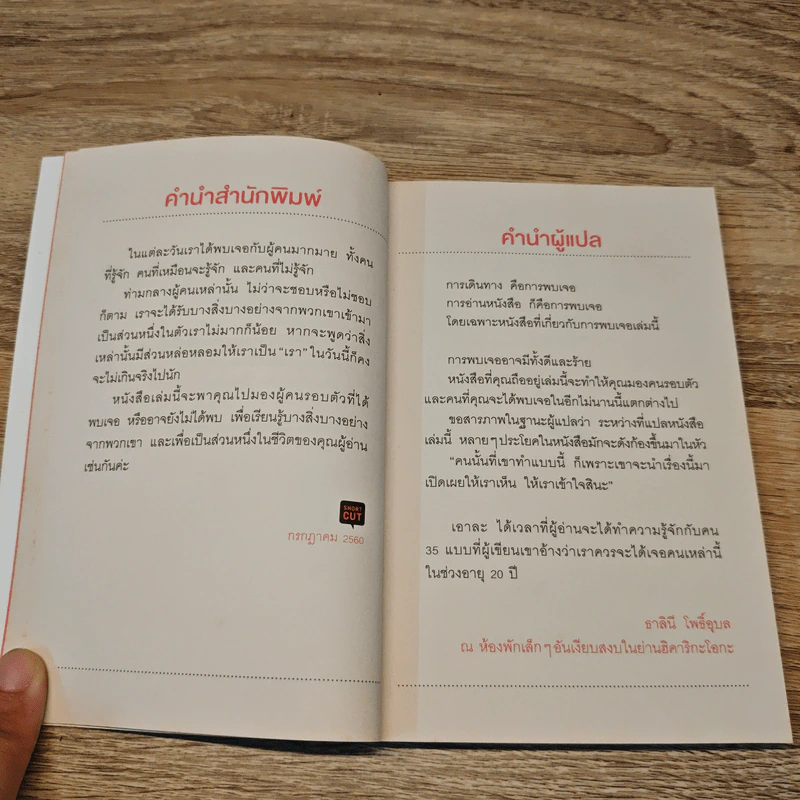 คำนำสำนักพิมพ์
ในแต่ละวันเราได้พบเจอกับผู้คนมากมาย ทั้งคน
ที่รู้จัก คนที่เหมือนจะรู้จัก และคนที่ไม่รู้จัก
ท่ามกลางผู้คนเหล่านั้น ไม่ว่าจะชอบหรือไม่ชอบ
ก็ตาม เราจะได้รับบางสิ่งบางอย่างจากพวกเขาเข้ามา
เป็นส่วนหนึ่งในตัวเราไม่มากก็น้อย หากจะพูดว่าสิ่ง
เหล่านั้นมีส่วนหล่อหลอมให้เราเป็น “เรา” ในวันนี้ก็คง
จะไม่เกินจริงไปนัก
หนังสือเล่มนี้จะพาคุณไปมองผู้คนรอบตัวที่ได้
พบเจอ หรืออาจยังไม่ได้พบ เพื่อเรียนรู้บางสิ่งบางอย่าง
จากพวกเขา และเพื่อเป็นส่วนหนึ่งในชีวิตของคุณผู้อ่าน
เช่นกันค่ะ
SHORT
CUT
กรกฎาคม 2560
คำนำผู้แปล
การเดินทาง คือการพบเจอ
การอ่านหนังสือ ก็คือการพบเจอ
โดยเฉพาะหนังสือที่เกี่ยวกับการพบเจอเล่มนี้
การพบเจออาจมีทั้งดีและร้าย
หนังสือที่คุณถืออยู่เล่มนี้จะทำให้คุณมองคนรอบตัว
และคนที่คุณจะได้พบเจอในอีกไม่นานนี้แตกต่างไป
ขอสารภาพในฐานะผู้แปลว่า ระหว่างที่แปลหนังสือ
เล่มนี้ หลายๆประโยคในหนังสือมักจะดังก้องขึ้นมาในหัว
“คนนั้นที่เขาทำแบบนี้ ก็เพราะเขาจะนำเรื่องนี้มา
เปิดเผยให้เราเห็น ให้เราเข้าใจสินะ”
เอาละ ได้เวลาที่ผู้อ่านจะได้ทำความรู้จักกับคน
35 แบบที่ผู้เขียนเขาอ้างว่าเราควรจะได้เจอคนเหล่านี้
ในช่วงอายุ 20 ปี
ธาลินี โพธิ์อุบล
ณ ห้องพักเล็กๆอันเงียบสงบในย่านฮิคาริกะโอกะ